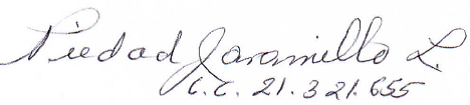 Piedad Jaramillo L.
C.C. 21.321.655